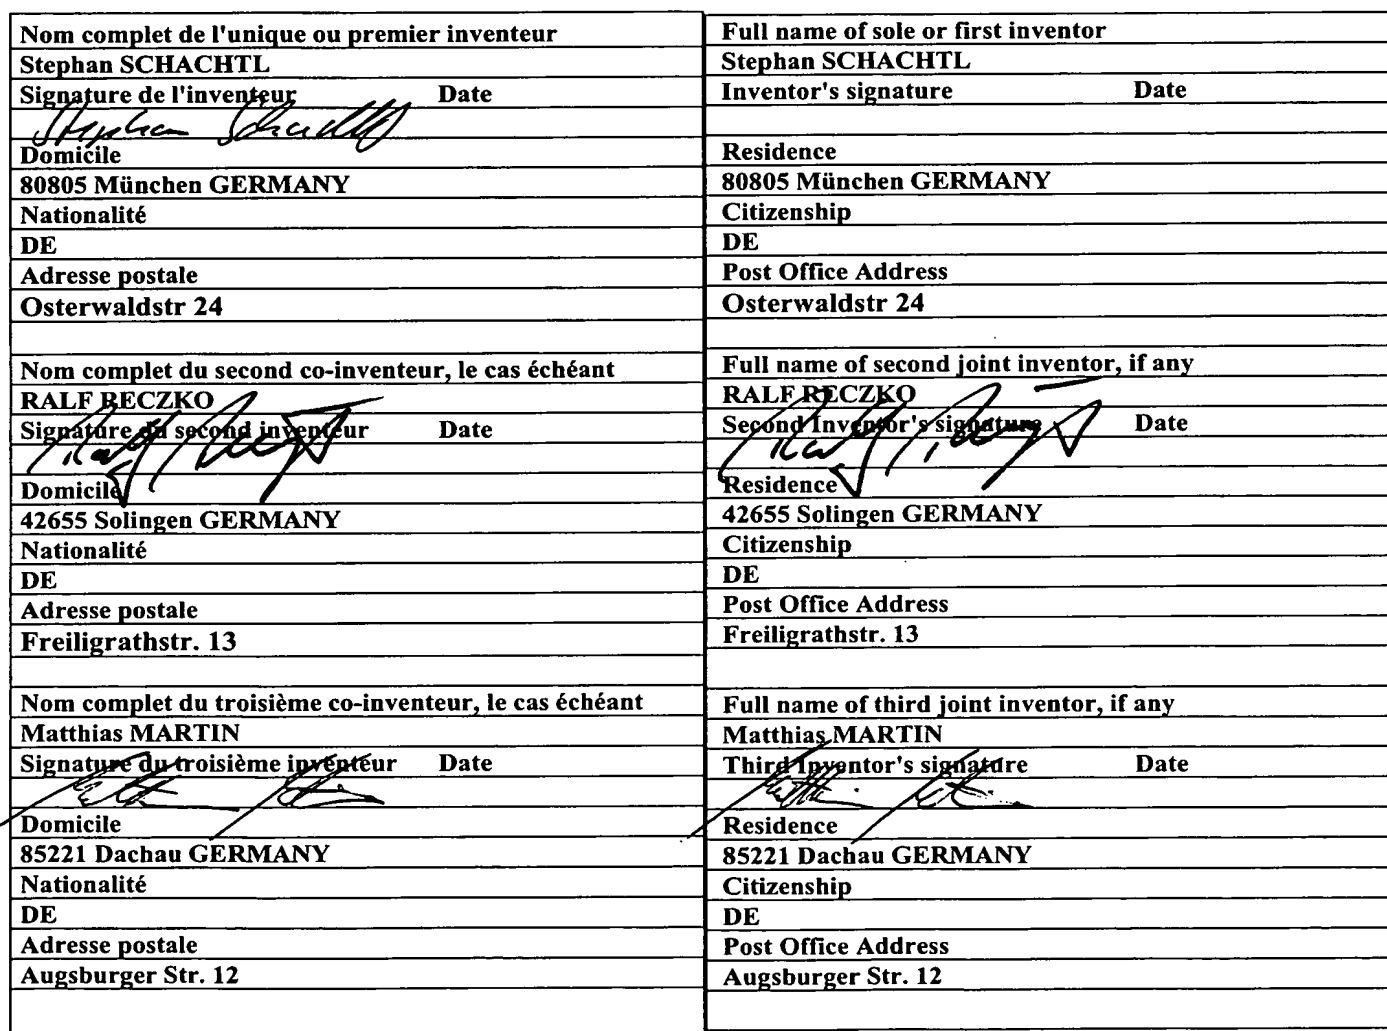 Nom complet de l'unique ou premier inventeur
Stephan SCHACHTL
Signature de l'inventeur Date
Stephan Schachtl
Domicile
80805 München GERMANY
Nationalité
DE
Adresse postale
Osterwaldstr 24
Nom complet du second co-inventeur, le cas échéant
RALF RECZKO
Signature du second inventeur Date
Domicile
42655 Solingen GERMANY
Nationalité
DE
Adresse postale
Freiligrathstr. 13
Nom complet du troisième co-inventeur, le cas échéant
Matthias MARTIN
Signature du troisième inventeur Date
Domicile
85221 Dachau GERMANY
Nationalité
DE
Adresse postale
Augsburger Str. 12
Full name of sole or first inventor
Stephan SCHACHTL
Inventor's signature Date
Residence
80805 München GERMANY
Citizenship
DE
Post Office Address
Osterwaldstr 24
Full name of second joint inventor, if any
RALF RECZKO
Second Inventor's signature Date
Residence
42655 Solingen GERMANY
Citizenship
DE
Post Office Address
Freiligrathstr. 13
Full name of third joint inventor, if any
Matthias MARTIN
Third Inventor's signature Date
Residence
85221 Dachau GERMANY
Citizenship
DE
Post Office Address
Augsburger Str. 12